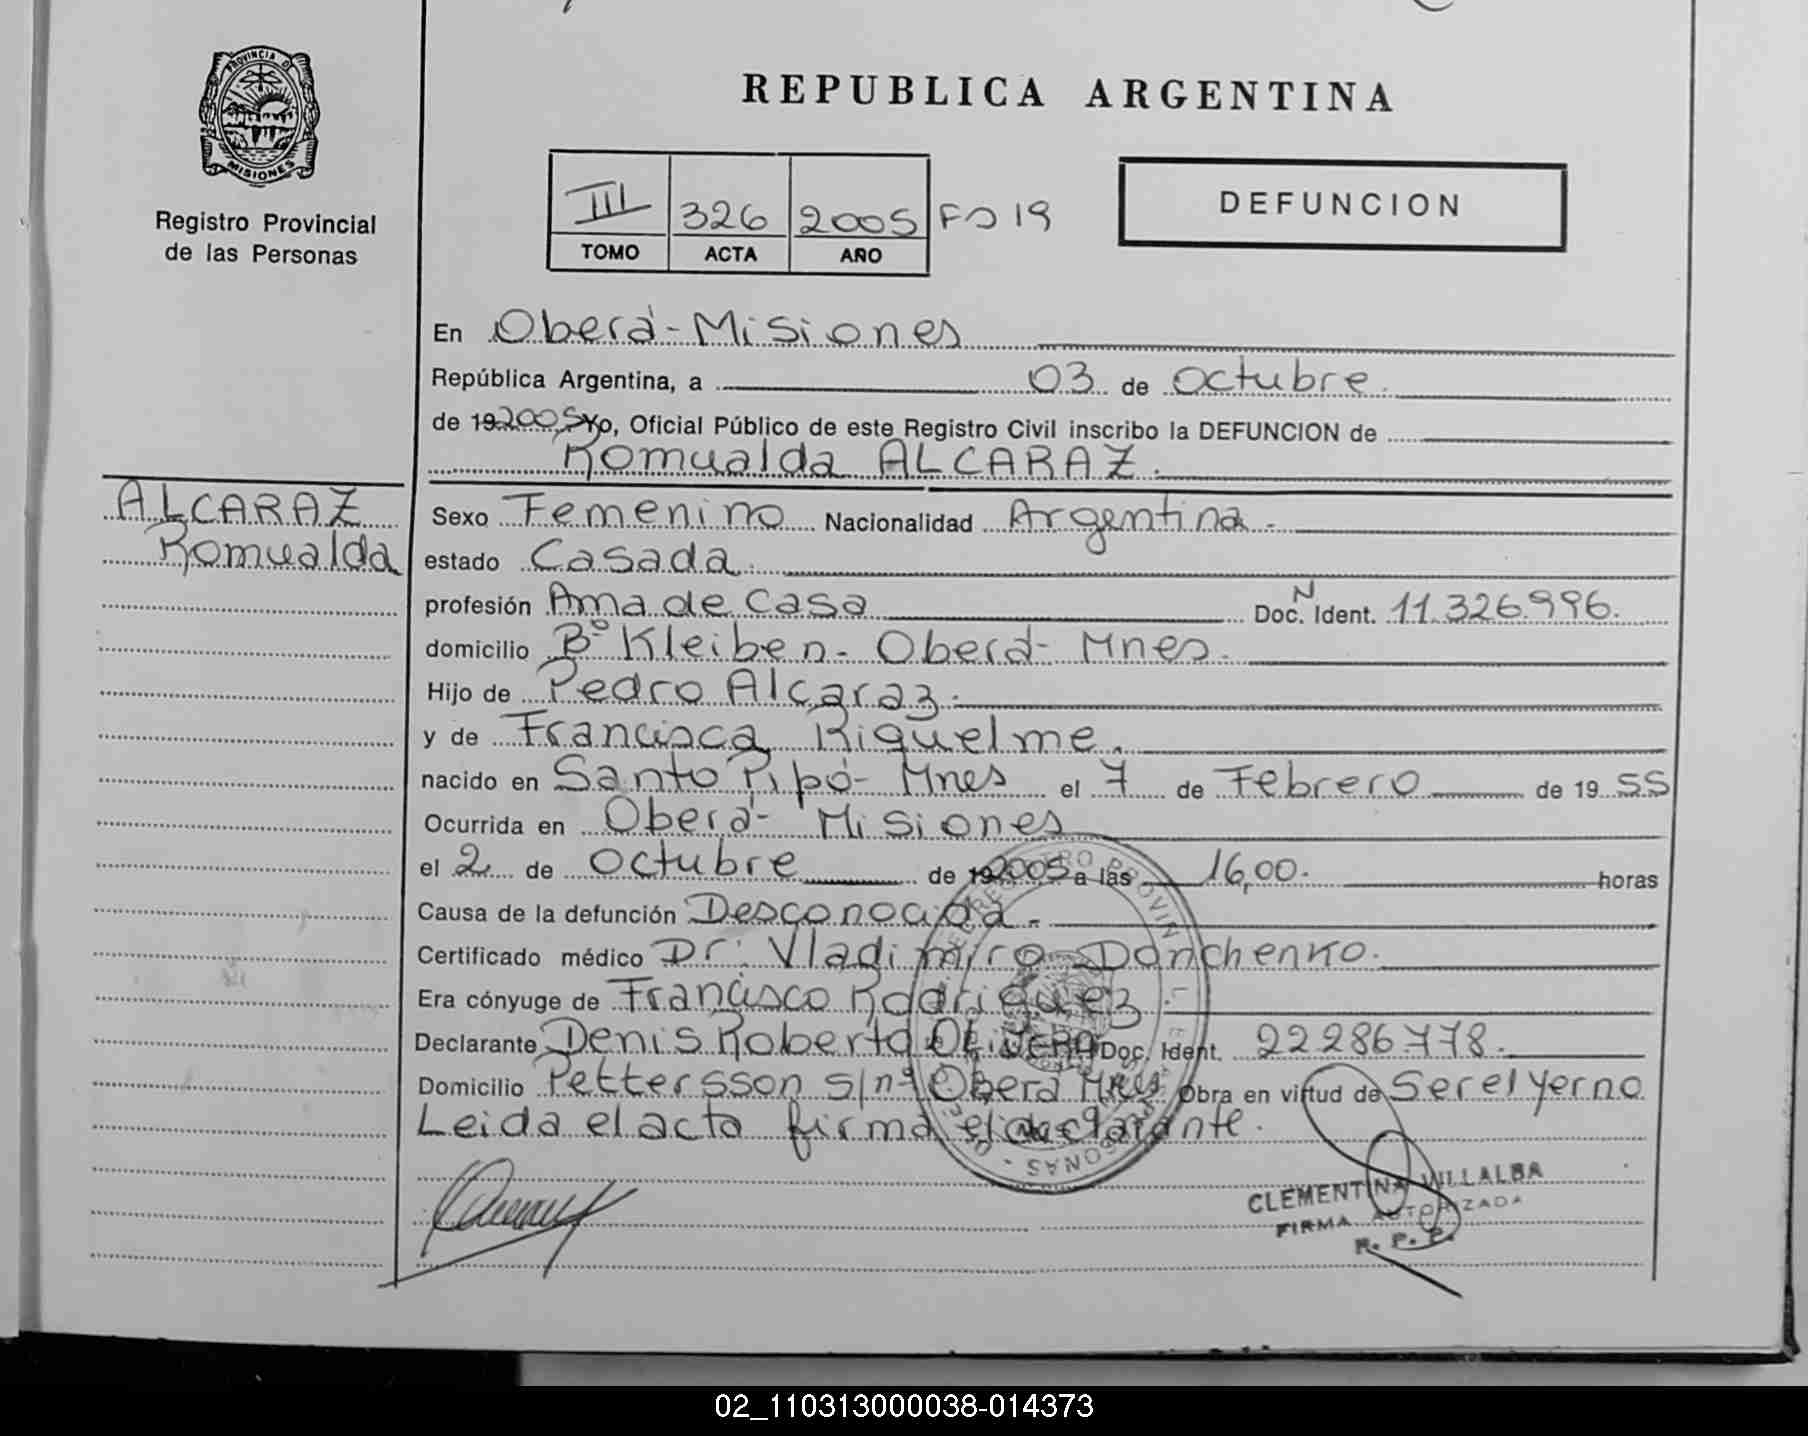 PROVINCIA D
MISIONES
Registro Provincial
de las Personas
REPUBLICA ARGENTINA
III 326 2005 Fo 19
TOMO ACTA AÑO
DEFUNCION
En Oberá-Misiones
República Argentina, a 03 de octubre.
de 192005 Yo, Oficial Público de este Registro Civil inscribo la DEFUNCION de
Romualda ALCARAZ.
ALCARAZ
Romualda
Sexo Femenino Nacionalidad Argentina.
estado Casada.
profesión Ama de casa Doc. N Ident. 11.326.996.
domicilio Bº Kleiben - Oberá - Mnes.
Hijo de Pedro Alcaraz.
y de Francisca Riquelme.
nacido en Santo Pipó - Mnes el 7 de Febrero de 1955
Ocurrida en Oberá - Misiones
el 2 de octubre de 192005 a las 16,00. horas
Causa de la defunción Desconocida.
Certificado médico Dr. Vladimiro Donchenko.
Era cónyuge de Francisco Rodriguez.
Declarante Denis Roberto OLIVERA Doc. Ident. 22286778.
Domicilio Pettersson s/nº Oberá Mnes Obra en virtud de Ser el yerno
Leida el acta firma el declarante.
CLEMENTINA VILLALBA
FIRMA AUTORIZADA
R. P. P.
02_110313000038-014373